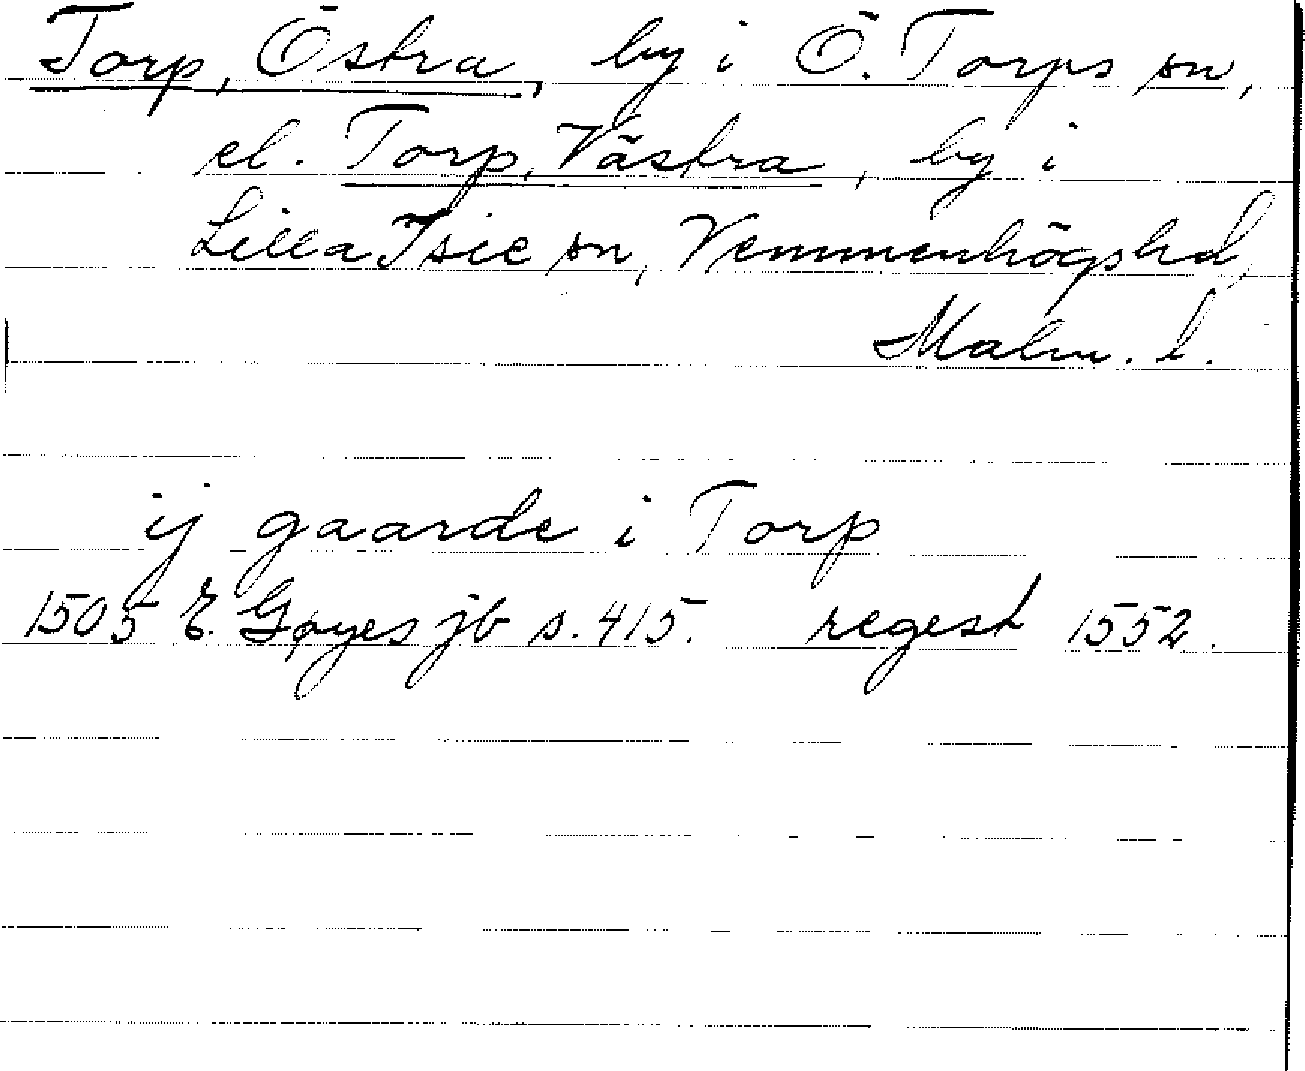 Torp, Östra, by i Ö. Torps sn,
el. Torp, Västra, by i
Lilla Isie sn, Vemmenhögs hd,
Malm. l.
ij gaarde i Torp
1505 E. Gøyes jb s. 415. regest 1552.